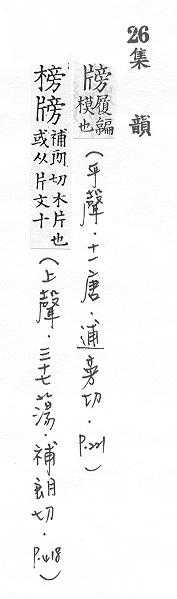 26 集韻
牓履編模也(平聲.十一唐.逋旁切.P.221)
榜牓補朗切木片也或从片文十(上聲.三十七蕩.補朗切.P.418)